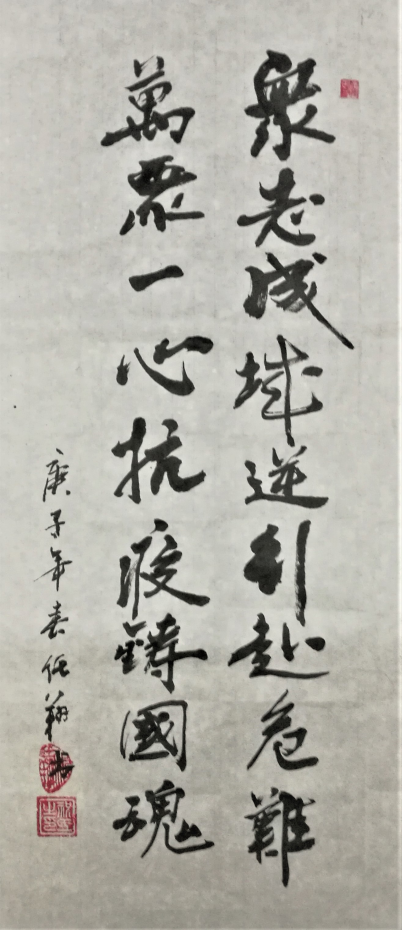 眾志成城逆行赴危難
萬眾一心抗疫鑄國魂
庚子年春任翔书